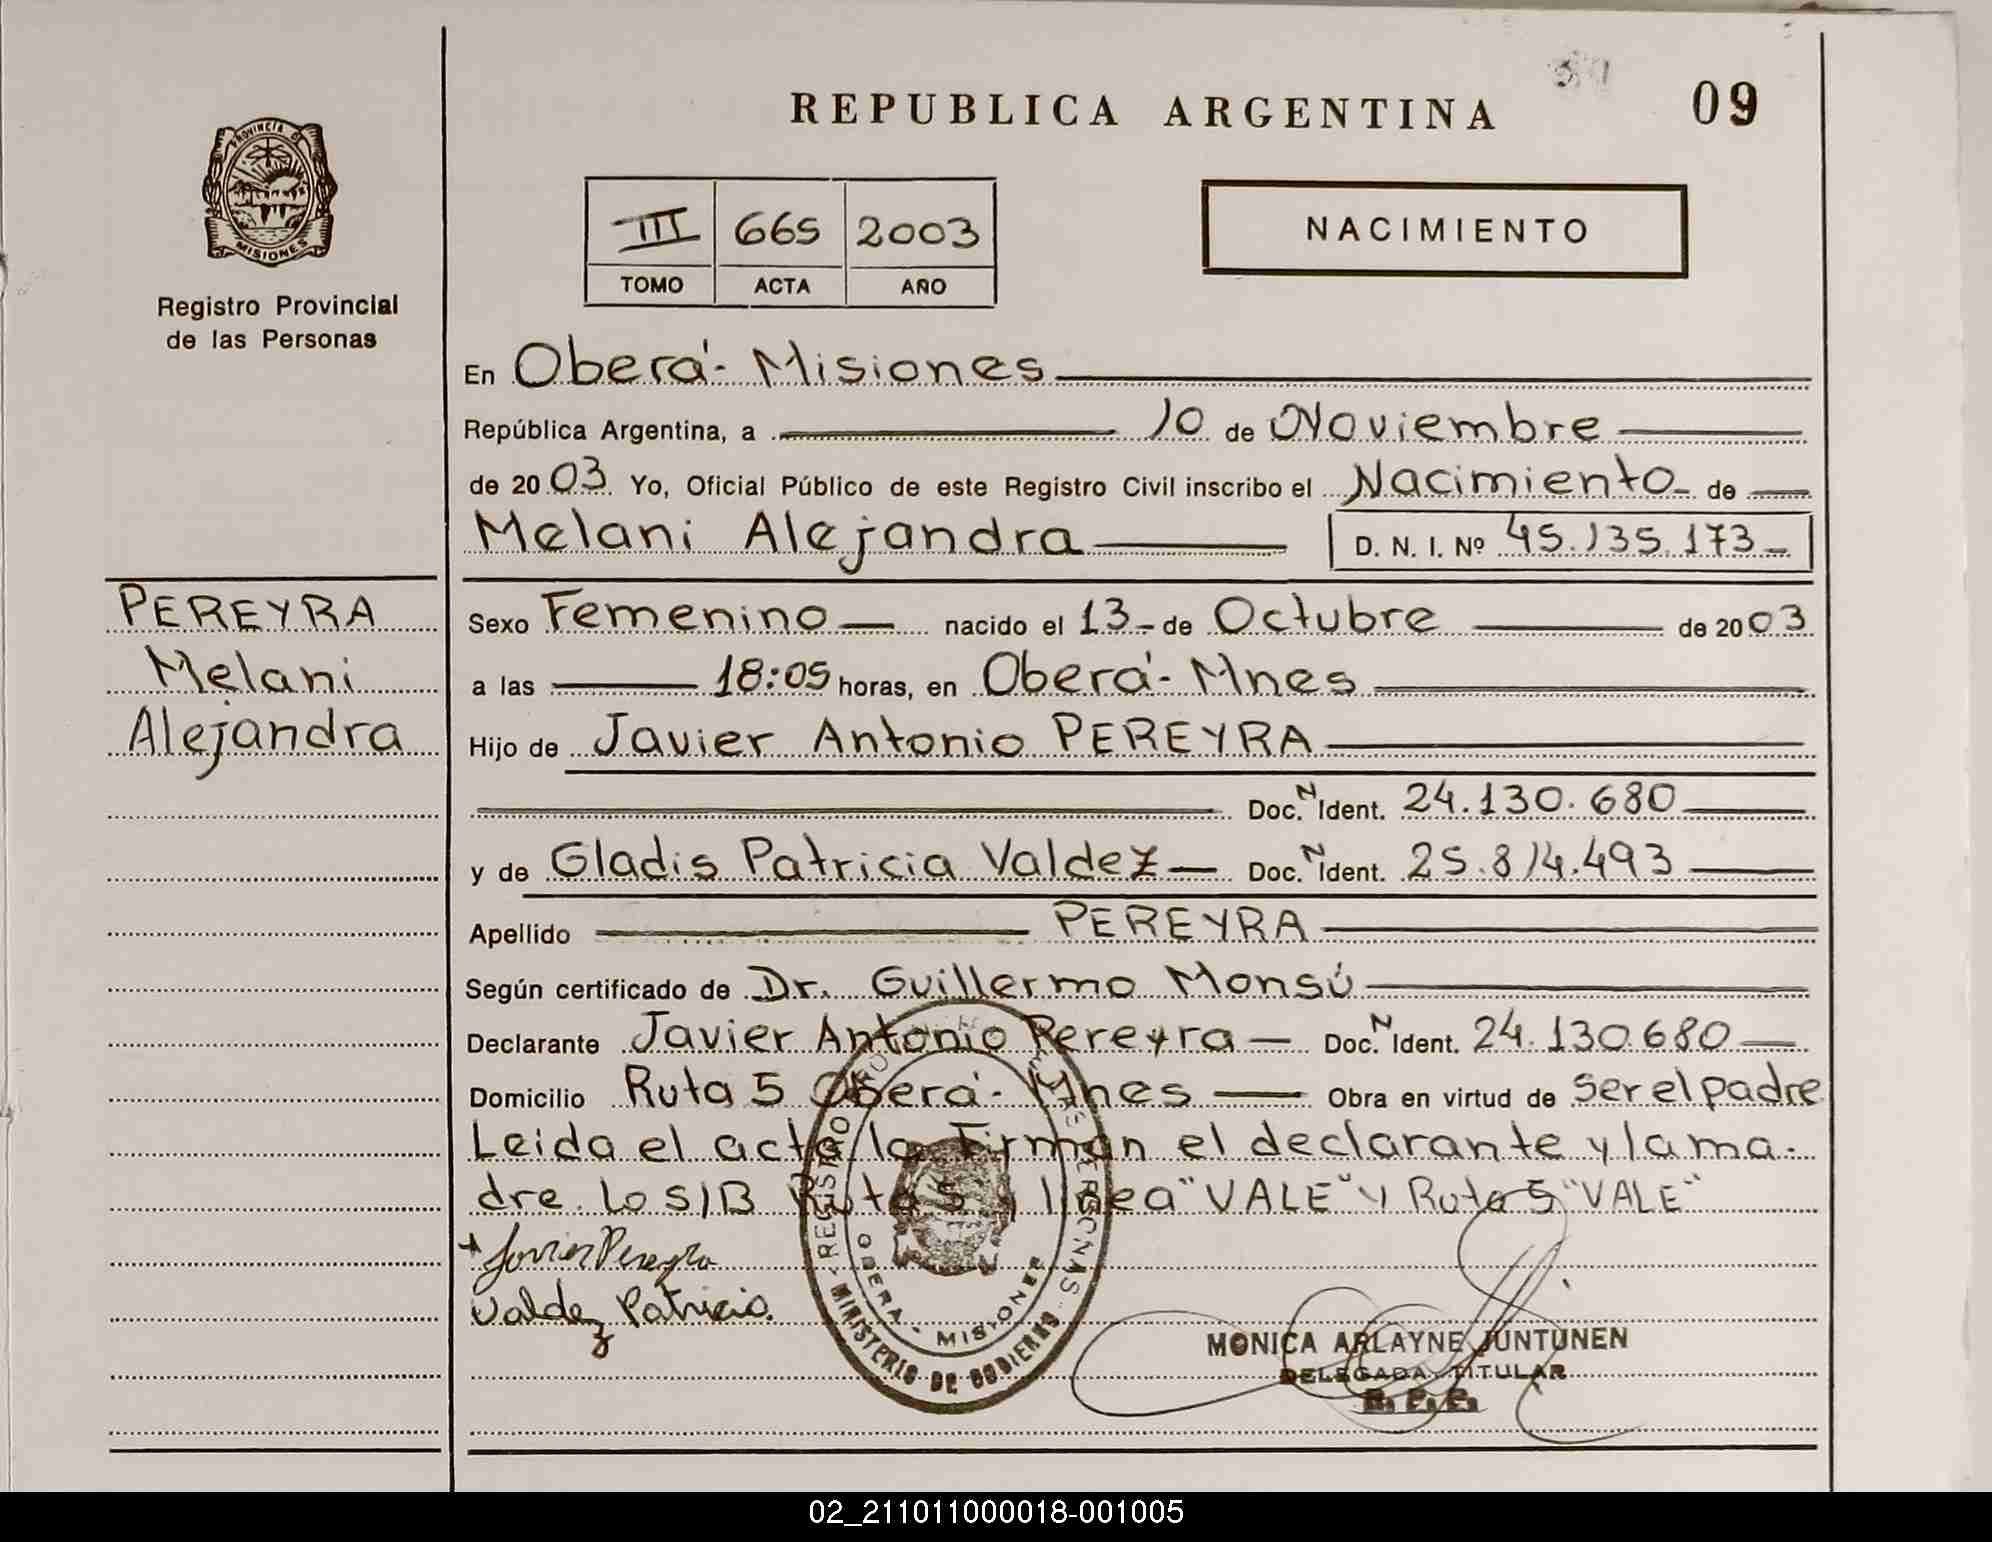 REPUBLICA ARGENTINA
09
PROVINCIA DE
MISIONES
Registro Provincial
de las Personas
III 665 2003
TOMO ACTA AÑO
NACIMIENTO
En Oberá- Misiones
República Argentina, a 10 de Noviembre
de 2003 Yo, Oficial Público de este Registro Civil inscribo el Nacimiento de
Melani Alejandra D. N. I. Nº 45.135.173
PEREYRA
Melani
Alejandra
Sexo Femenino nacido el 13 de Octubre de 2003
a las 18:05 horas, en Oberá- Mnes
Hijo de Javier Antonio PEREYRA
Doc. N Ident. 24.130.680
y de Gladis Patricia Valdez Doc. N Ident. 25.814.493
Apellido PEREYRA
Según certificado de Dr. Guillermo Monsú
Declarante Javier Antonio Pereyra Doc. N Ident. 24.130.680
Domicilio Ruta 5 Oberá- Mnes Obra en virtud de ser el padre
Leida el acta la Firman el declarante y la ma-
dre. Lo S/B Ruta 5 y linea "VALE" y Ruta 5 "VALE"
Javier Pereyra
Valdez Patricia.
REGISTRO PERSONAS
OBERA - MISIONES
MINISTERIO DE GOBIERNO
MONICA ARLAYNE JUNTUNEN
DELEGADA TITULAR
R. P. P.
02_211011000018-001005